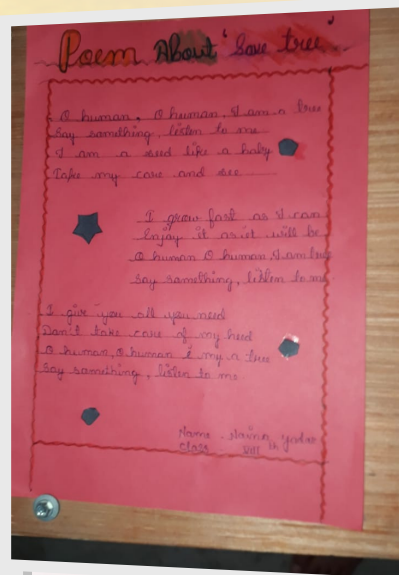 Poem About 'Save tree'
O human, O human, I am a tree
Say something, listen to me
I am a seed like a baby
Take my care and see
I grow fast as I can
Enjoy it as it will be
O human O human, I am tree
Say something, listen to me
I give you all you need
Don't take care of my heed
O human, O human I my a tree
Say something, listen to me
Name - Naina
Class VIII th